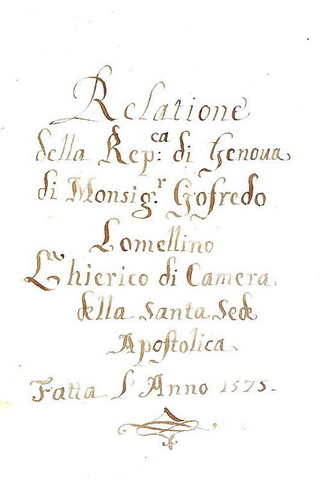 Relatione
della Rep:ca di Genova
di Monsig.r Gofredo
Lomellino
Chierico di Camera
della Santa Sede
Apostolica
Fatta L'Anno 1575.